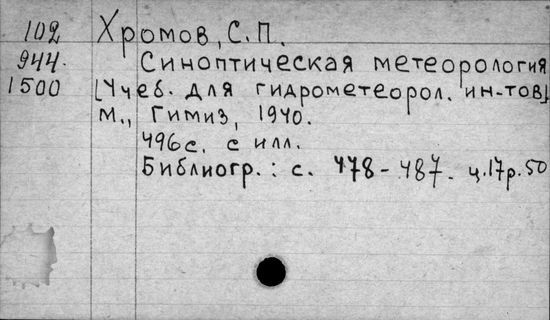 102 Хромов, С.П.
944. Синоптическая метеорология
1500 [Учеб. для гидрометеорол. ин-тов]
М., Гимиз, 1940.
496с. с илл.
Библиогр.: с. 478-487. ц.17р.50